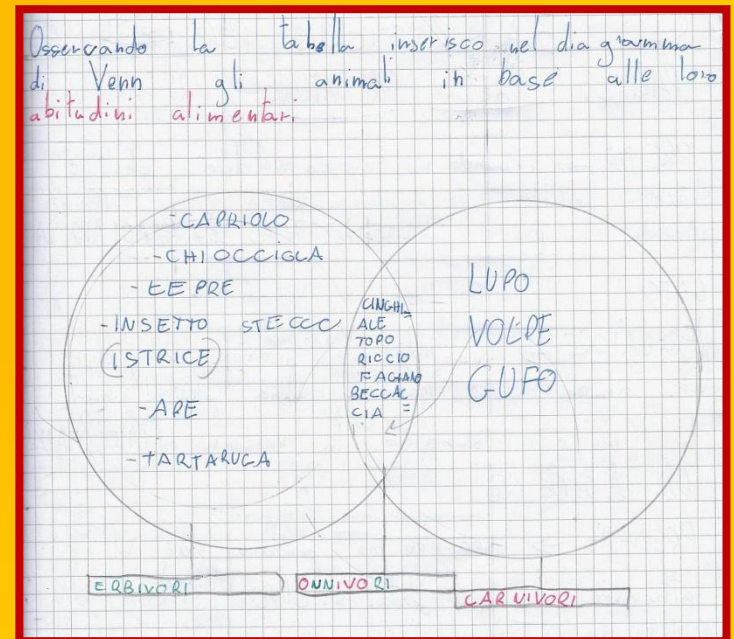 Osservando la tabella inserisco nel diagramma
di Venn gli animali in base alle loro
abitudini alimentari
-CAPRIOLO
-CHIOCCIOLA
-LEPRE
-INSETTO STECCO
(ISTRICE)
-APE
-TARTARUGA
CINGHI_
ALE
TOPO
RICCIO
FAGIANO
BECCAC
CIA
LUPO
VOLPE
GUFO
ERBIVORI
ONNIVORI
CARNIVORI